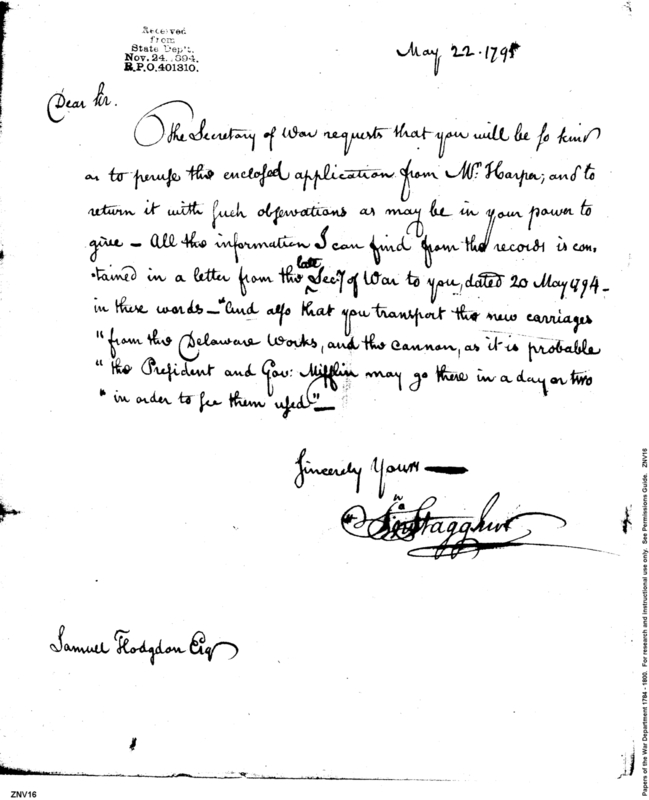 Received
from
State Dep't.
Nov. 24. 1894.
R.P.O. 401310.
May 22. 1795
Dear Sir.
The Secretary of War requests that you will be so kind
as to peruse the enclosed application from Mr. Harper; and to
return it with such observations as may be in your power to
give — All the information I can find from the records is con-
tained in a letter from the late Secy of War to you, dated 20 May 1794 —
in these words — "And also that you transport the new carriages
"from the Delaware Works, and the cannon, as it is probable
"the President and Gov: Mifflin may go there in a day or two
"in order to see them used" —
Sincerely Yours
Stagg Junr
Samuel Hodgdon Esq
ZNV16
Papers of the War Department 1784 - 1800. For research and instructional use only. See Permissions Guide. ZNV16